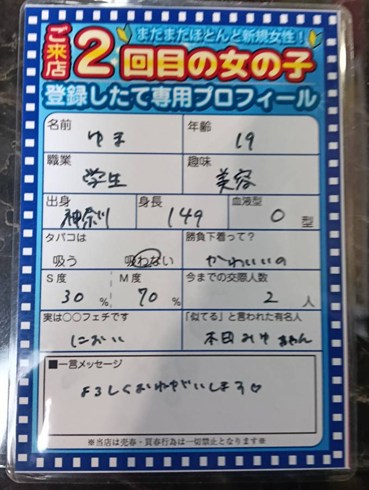 まだまだほとんど新規女性!
ご来店2回目の女の子
登録したて専用プロフィール
名前 ゆま 年齢 19
職業 学生 趣味 美容
出身 神奈川 身長 149 血液型 O 型
タバコは 勝負下着って?
吸う 吸わない かわいいの
S度 M度 今までの交際人数
30 % 70 % 2 人
実は○○フェチです 「似てる」と言われた有名人
におい 本田みゆ
■一言メッセージ
よろしくおねがいします
※当店は売春・買春行為は一切禁止となります※